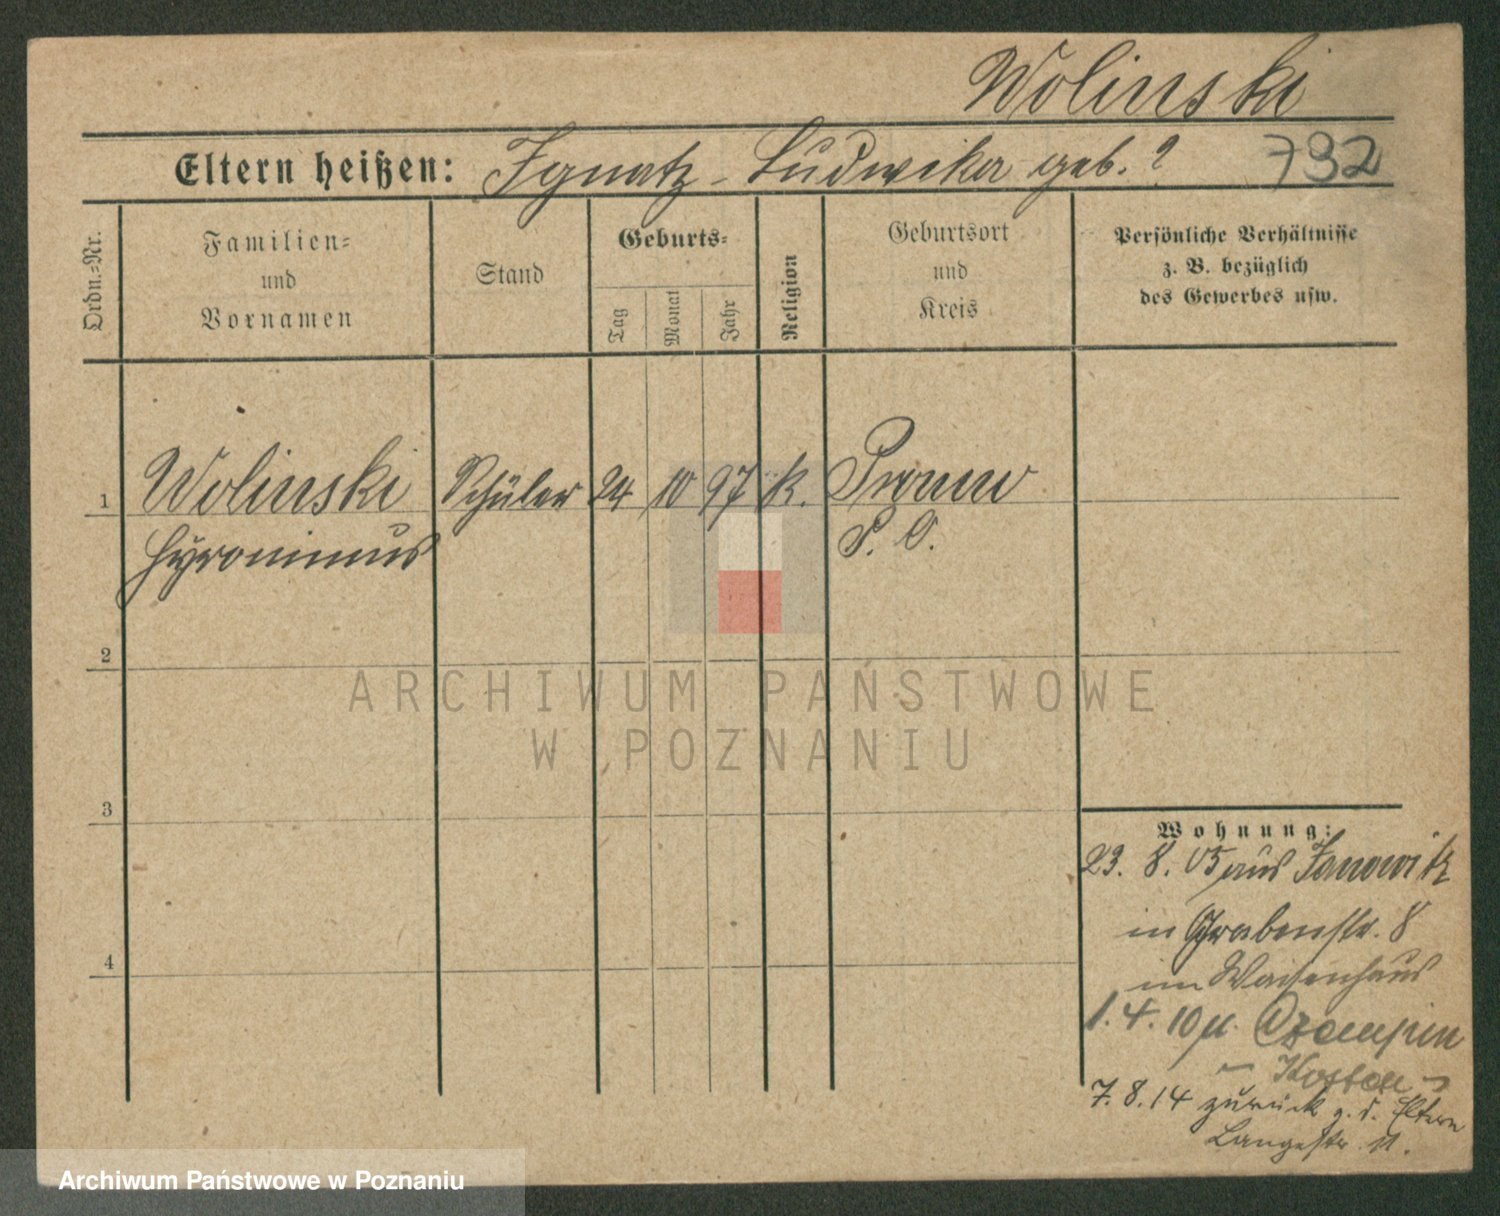 Wolinski
Eltern heißen: Ignatz - Ludwika geb. ?
792
Ordn.=Nr.
Familien=
und
Vornamen
Stand
Geburts=
Tag
Monat
Jahr
Religion
Geburtsort
und
Kreis
Persönliche Verhältnisse
z. B. bezüglich
des Gewerbes usw.
1 Wolinski Schüler 24 10 97 k.
Hyronimus
S. O.
2
3
4
Wohnung:
23. 8. 05 aus Janowitz
in Grabenstr. 8
im Waisenhaus
1. 4. 10 n. Czempin
- Kosten -
7. 8. 14 zurück z. d. Eltern
Langestr. 11.
ARCHIWUM PAŃSTWOWE
W POZNANIU
Archiwum Państwowe w Poznaniu